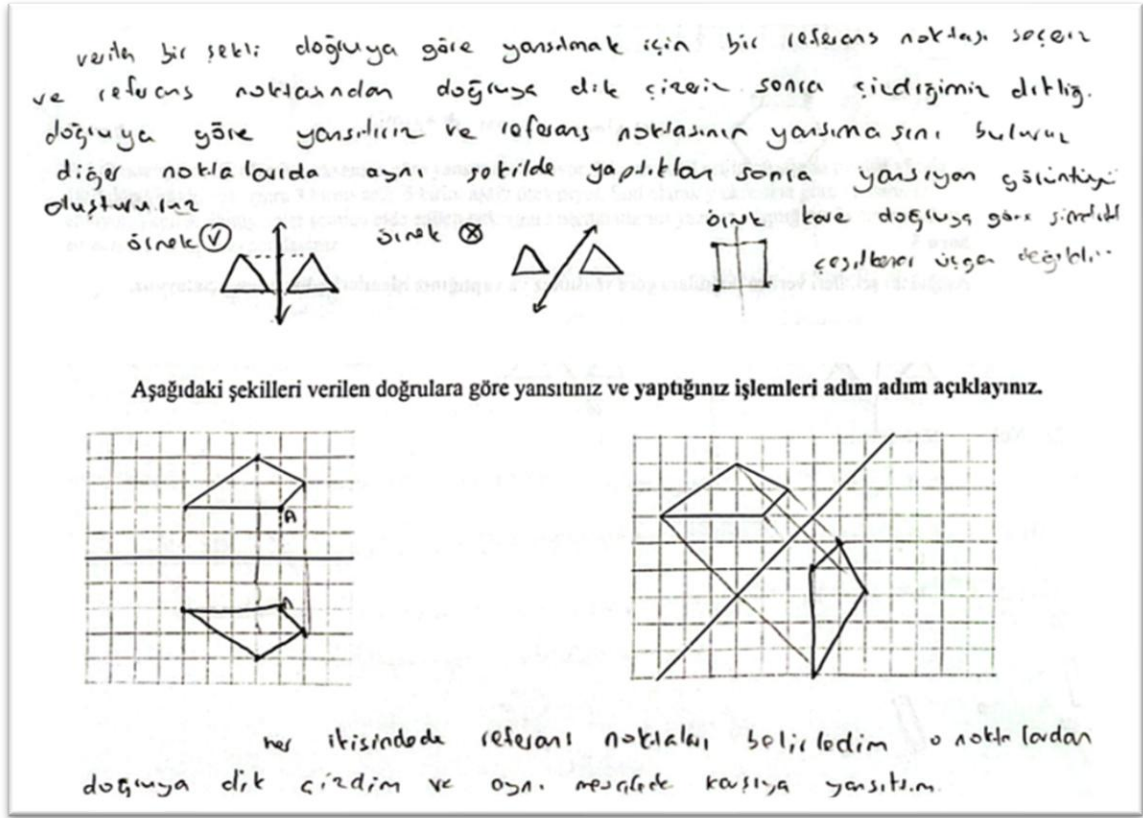 verilen bir şekli doğruya göre yansıtmak için bir referans noktası seçeriz
ve referans noktasından doğruya dik çizeriz. sonra çizdiğimiz dikliğ.
doğruya göre yansıtırız ve referans noktasının yansımasını buluruz
diğer noktalarıda aynı şekilde yaptıktan sonra yansıyan görüntüyü
oluştururuz
örnek V örnek X örnek kare doğruya göre simetrik
çeşitkenar üçgen değildir..
Aşağıdaki şekilleri verilen doğrulara göre yansıtınız ve yaptığınız işlemleri adım adım açıklayınız.
A
A
her ikisindede referans noktaları belirledim o noktalardan
doğruya dik çizdim ve aynı mesafede karşıya yansıttım.